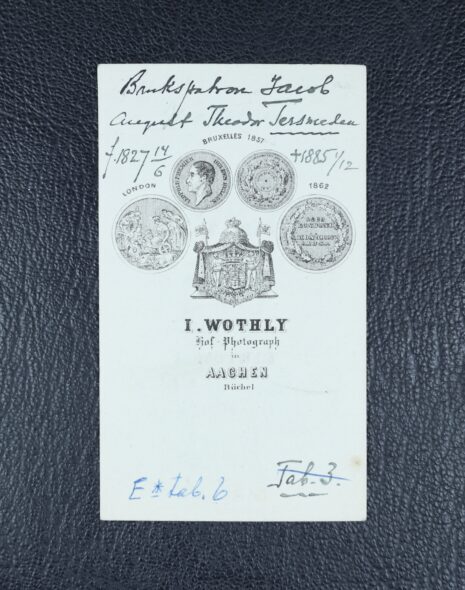 Brukspatron Jacob
August Theodor Tersmeden
f. 1827 14/6
†1885 1/12
BRUXELLES 1857
LONDON
1862
I. WOTHLY
Hof-Photograph
in
AACHEN
Büchel
E* tab. 6
Tab. 3.